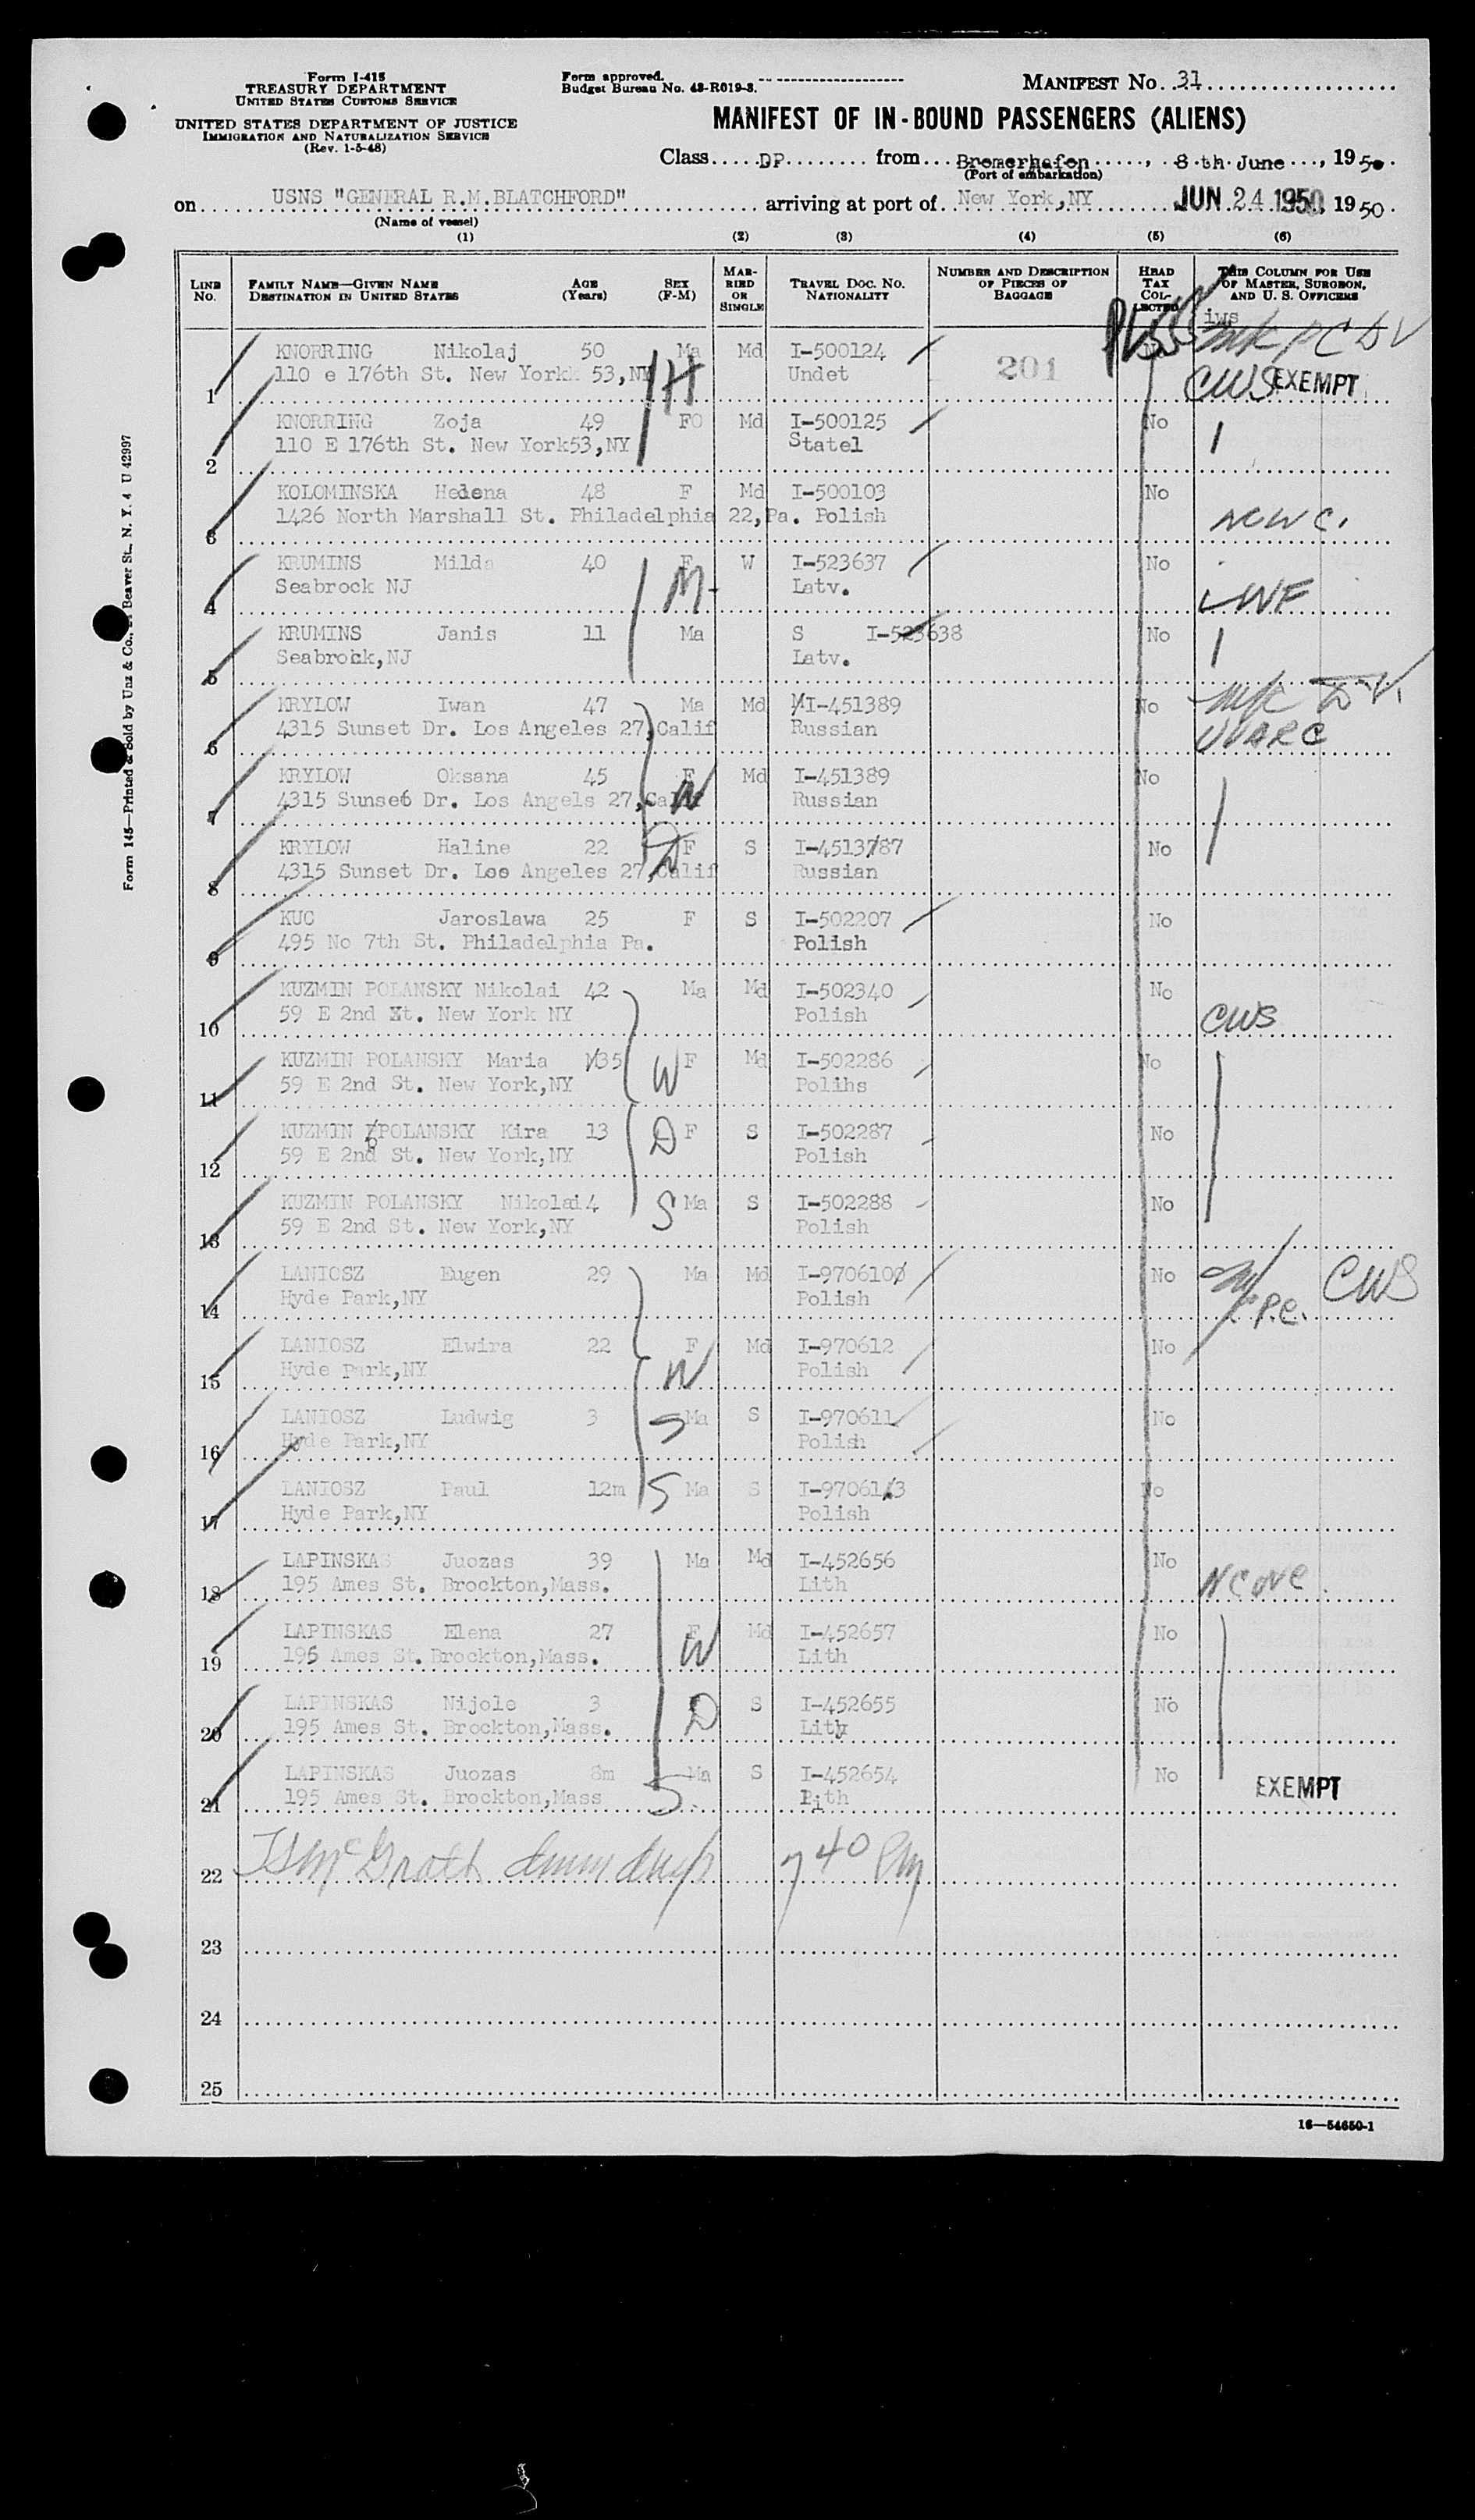 Form I-415
TREASURY DEPARTMENT
UNITED STATES CUSTOMS SERVICE
UNITED STATES DEPARTMENT OF JUSTICE
IMMIGRATION AND NATURALIZATION SERVICE
(Rev. 1-5-48)
Form approved.
Budget Bureau No. 43-R019-3.
MANIFEST No. 31
MANIFEST OF IN-BOUND PASSENGERS (ALIENS)
Class DP from Bremerhafen, 8 th June, 1950
(Port of embarkation)
on USNS "GENERAL R.M.BLATCHFORD" arriving at port of New York,NY JUN 24 1950, 1950
(Name of vessel)
(1) (2) (3) (4) (5) (6)
LINE No. FAMILY NAME—GIVEN NAME DESTINATION IN UNITED STATES AGE (Years) SEX (F-M) MARRIED OR SINGLE TRAVEL DOC. NO. NATIONALITY NUMBER AND DESCRIPTION OF PIECES OF BAGGAGE HEAD TAX COLLECTED THIS COLUMN FOR USE OF MASTER, SURGEON, AND U. S. OFFICERS
iws
KNORRING Nikolaj 50 Ma Md I-500124 201
1 110 e 176th St. New York 53,NY H Undet CWS EXEMPT
KNORRING Zoja 49 F Md I-500125 No
2 110 E 176th St. New York53,NY Statel
KOLOMINSKA Helena 48 F Md I-500103 No
3 1426 North Marshall St. Philadelphia 22,Pa. Polish NCWC.
KRUMINS Milda 40 F W I-523637 No
4 Seabrock NJ M Latv. LWF
KRUMINS Janis 11 Ma S I-523638 No
5 Seabrock,NJ Latv.
KRYLOW Iwan 47 Ma Md I-451389 No
6 4315 Sunset Dr. Los Angeles 27,Calif Russian
KRYLOW Oksana 45 F Md I-451389 No
7 4315 Sunse6 Dr. Los Angels 27,Calif W Russian
KRYLOW Haline 22 F S I-4513787 No
8 4315 Sunset Dr. Los Angeles 27,Calif D Russian
KUC Jaroslawa 25 F S I-502207 No
9 495 No 7th St. Philadelphia Pa. Polish
KUZMIN POLANSKY Nikolai 42 Ma Md I-502340 No
10 59 E 2nd St. New York NY Polish CWS
KUZMIN POLANSKY Maria 35 F Md I-502286 No
11 59 E 2nd St. New York,NY W Polihs
KUZMIN POLANSKY Kira 13 D F S I-502287 No
12 59 E 2nd St. New York,NY Polish
KUZMIN POLANSKY Nikolai 4 S Ma S I-502288 No
13 59 E 2nd St. New York,NY Polish
LANIOSZ Eugen 29 Ma Md I-970610 No CWS
14 Hyde Park,NY Polish P.C.
LANIOSZ Elwira 22 F Md I-970612 No
15 Hyde Park,NY W Polish
LANIOSZ Ludwig 3 S Ma S I-970611 No
16 Hyde Park,NY Polish
LANIOSZ Paul 12m S Ma S I-970613 No
17 Hyde Park,NY Polish
LAPINSKAS Juozas 39 Ma Md I-452656 No
18 195 Ames St. Brockton,Mass. Lith
LAPINSKAS Elena 27 F Md I-452657 No
19 196 Ames St. Brockton,Mass. W Lith
LAPINSKAS Nijole 3 D S I-452655 No
20 195 Ames St. Brockton,Mass. Lith
LAPINSKAS Juozas 8m Ma S I-452654 No
21 195 Ames St. Brockton,Mass S Lith EXEMPT
22 McGrath 7 40 PM
23
24
25
16—54650-1
Form 145—Printed & Sold by Unz & Co., Beaver St., N. Y. 4 U 42997